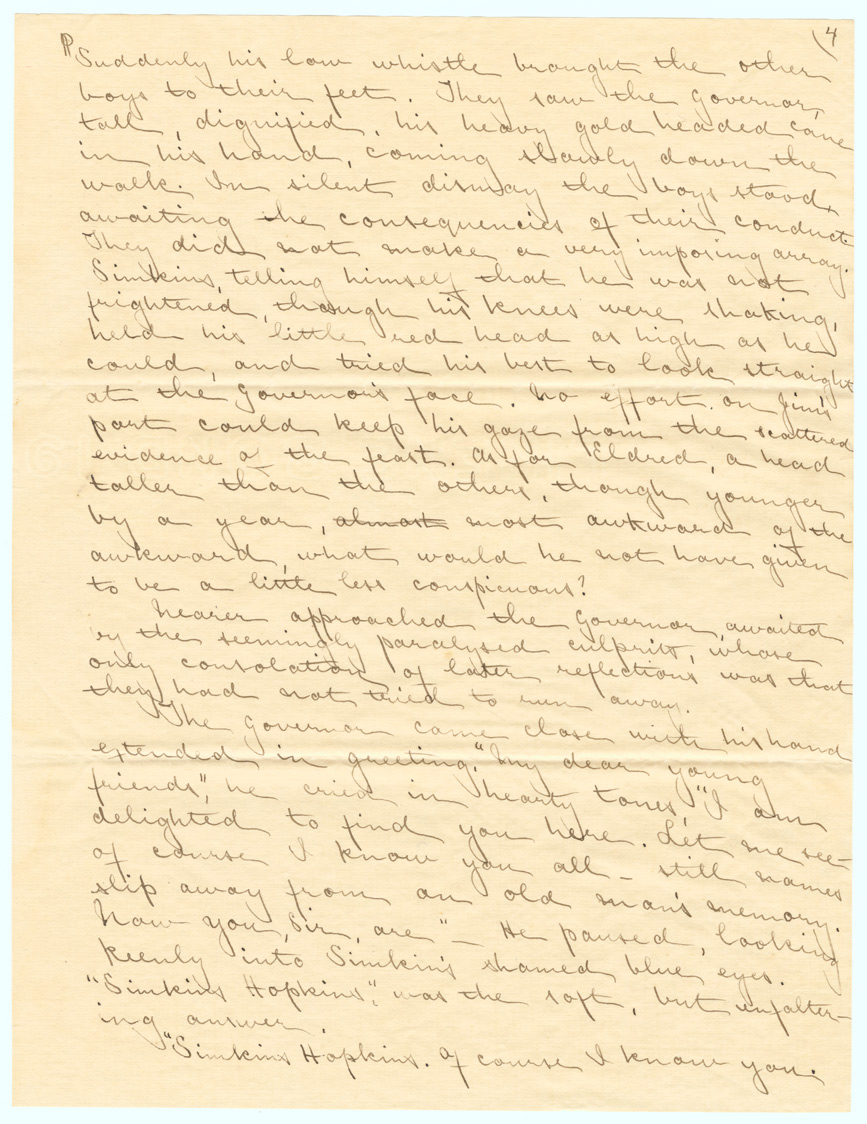 (4
Suddenly his low whistle brought the other
boys to their feet. They saw the Governor,
tall, dignified, his heavy gold headed cane
in his hand, coming slowly down the
walk. In silent dismay the boys stood,
awaiting the consequencies of their conduct.
They did not make a very imposing array.
Simkins, telling himself that he was not
frightened, though his knees were shaking,
held his little red head as high as he
could, and tried his best to look straight
at the Governor's face. No effort on Jim's
part could keep his gaze from the scattered
evidence of the feast. As for Eldred, a head
taller than the others, though younger
by a year, almost most awkward of the
awkward, what would he not have given
to be a little less conspicuous?
Nearer approached the Governor, awaited
by the seemingly paralysed culprits, whose
only consolation of later reflections was that
they had not tried to run away.
The Governor came close with his hand
extended in greeting. "My dear young
friends", he cried in hearty tones, "I am
delighted to find you here. Let me see -
of course I know you all - still names
slip away from an old man's memory.
Now you, sir, are" - He paused, looking
keenly into Simkin's shamed blue eyes.
"Simkins Hopkins", was the soft, but unfalter-
ing answer.
"Simkins Hopkins. Of course I know you.